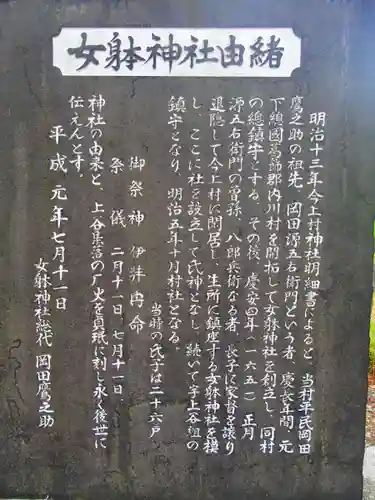 女躰神社由緒
明治十三年今上村神社明細書によると 当村平民岡田
鷹之助の祖先、岡田源五右衛門という者 慶長年間 元
下總國葛飾郡内川村を開拓して女躰神社を創立し、同村
の總鎮守とする。その後、慶安四年(一六五一)正月
源五右衛門の曽孫、八郎兵衛なる者、長子に家督を譲り
退隠して今上村に閑居し、生所に鎮座する女躰神社を模
し、ここに社を設立して氏神となし、続いて字上谷組の
鎮守となり、明治五年十月村社となる。
当時の氏子は二十六戸
御祭神 伊弉冉命
祭儀 二月十一日、七月十一日、
神社の由来と、上谷集落の戸火を貞珉に刻し永く後世に
伝えんとす。
平成元年七月十一日
女躰神社総代 岡田鷹之助